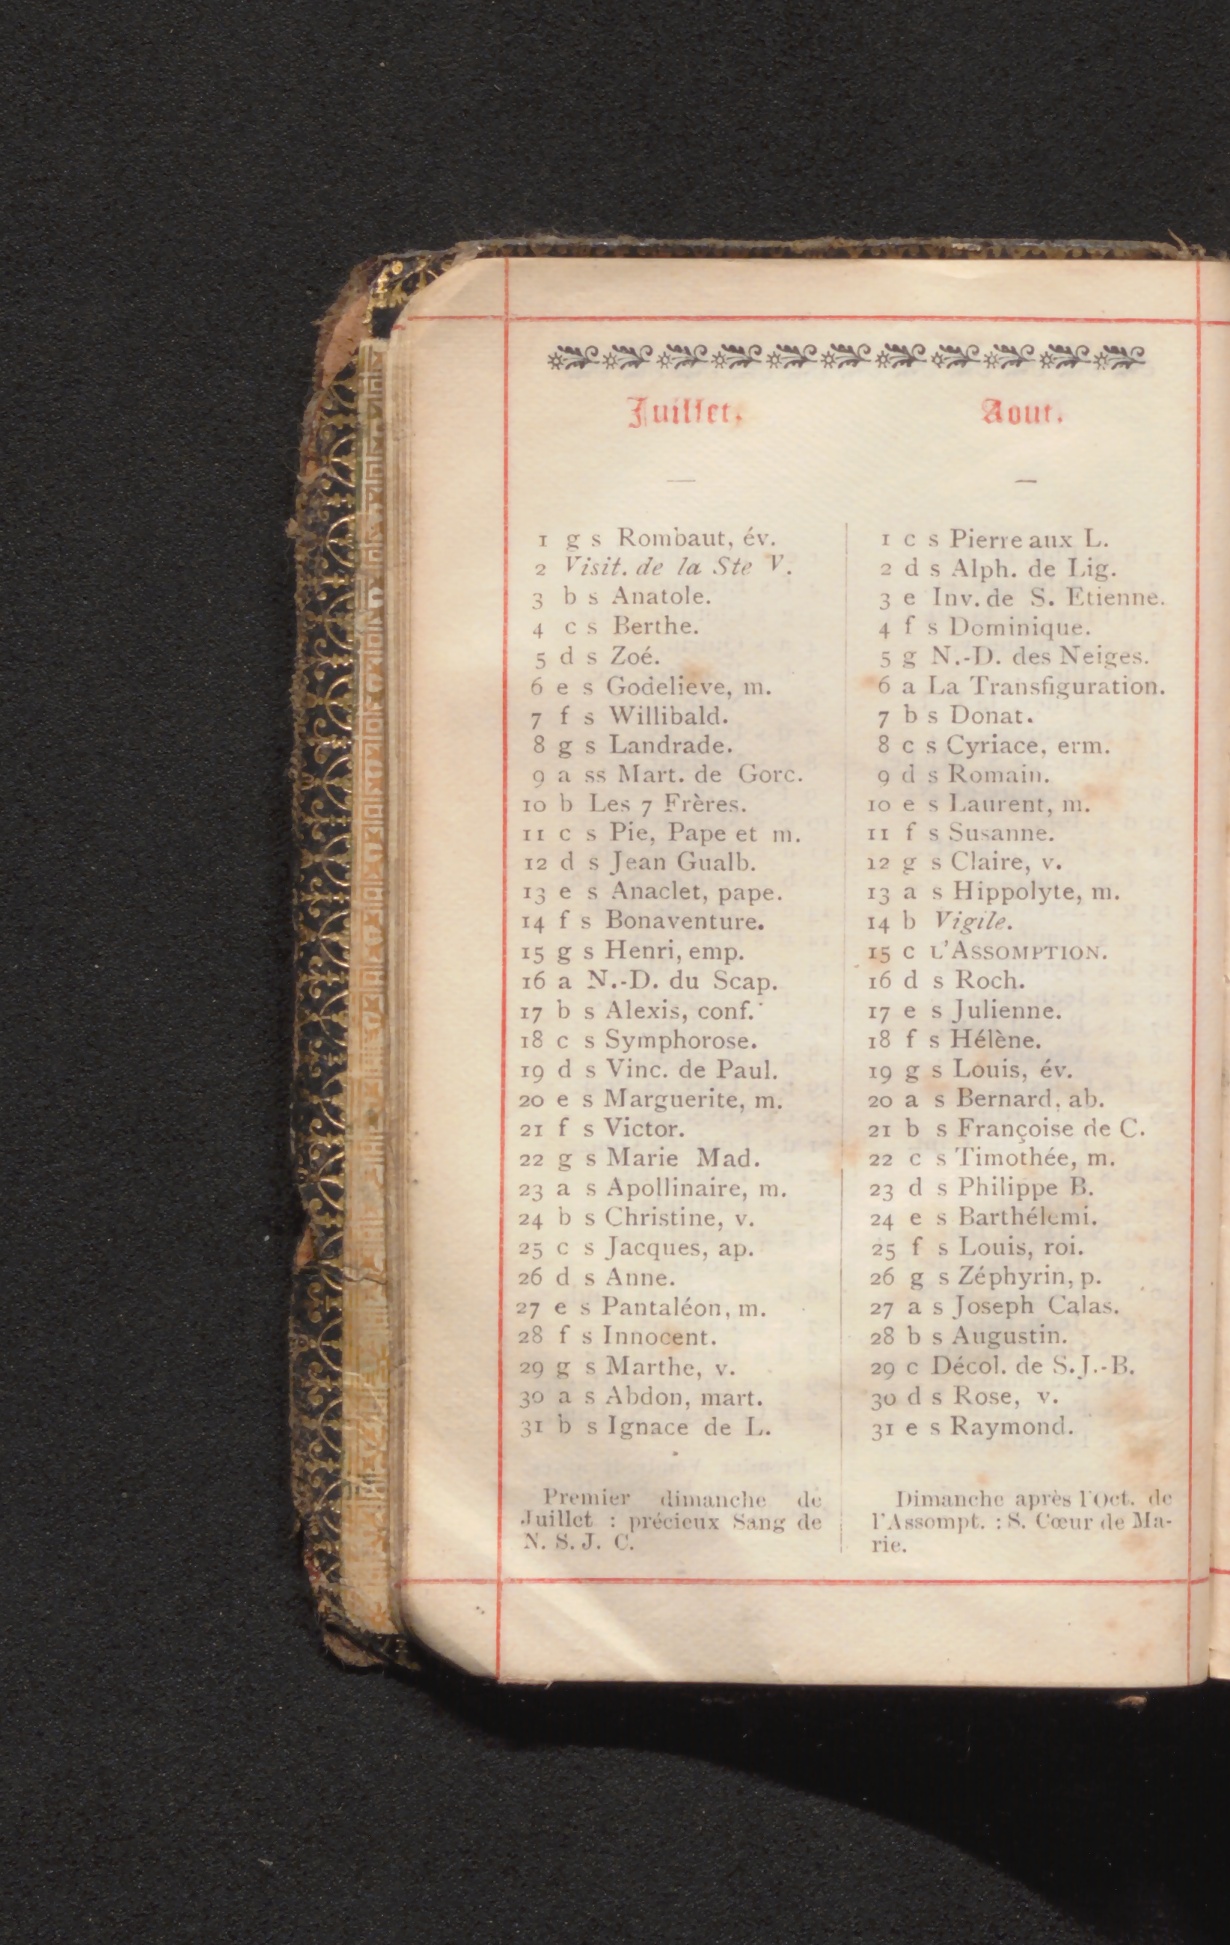 Juillet.
1 g s Rombaut, év.
2 Visit. de la Ste V.
3 b s Anatole.
4 c s Berthe.
5 d s Zoé.
6 e s Godelieve, m.
7 f s Willibald.
8 g s Landrade.
9 a ss Mart. de Gorc.
10 b Les 7 Frères.
11 c s Pie, Pape et m.
12 d s Jean Gualb.
13 e s Anaclet, pape.
14 f s Bonaventure.
15 g s Henri, emp.
16 a N.-D. du Scap.
17 b s Alexis, conf.
18 c s Symphorose.
19 d s Vinc. de Paul.
20 e s Marguerite, m.
21 f s Victor.
22 g s Marie Mad.
23 a s Apollinaire, m.
24 b s Christine, v.
25 c s Jacques, ap.
26 d s Anne.
27 e s Pantaléon, m.
28 f s Innocent.
29 g s Marthe, v.
30 a s Abdon, mart.
31 b s Ignace de L.
Premier dimanche de
Juillet : précieux Sang de
N. S. J. C.
Aout.
1 c s Pierre aux L.
2 d s Alph. de Lig.
3 e Inv. de S. Etienne.
4 f s Dominique.
5 g N.-D. des Neiges.
6 a La Transfiguration.
7 b s Donat.
8 c s Cyriace, erm.
9 d s Romain.
10 e s Laurent, m.
11 f s Susanne.
12 g s Claire, v.
13 a s Hippolyte, m.
14 b Vigile.
15 c L'ASSOMPTION.
16 d s Roch.
17 e s Julienne.
18 f s Hélène.
19 g s Louis, év.
20 a s Bernard, ab.
21 b s Françoise de C.
22 c s Timothée, m.
23 d s Philippe B.
24 e s Barthélemi.
25 f s Louis, roi.
26 g s Zéphyrin, p.
27 a s Joseph Calas.
28 b s Augustin.
29 c Décol. de S.J.-B.
30 d s Rose, v.
31 e s Raymond.
Dimanche après l'Oct. de
l'Assompt. : S. Cœur de Ma-
rie.